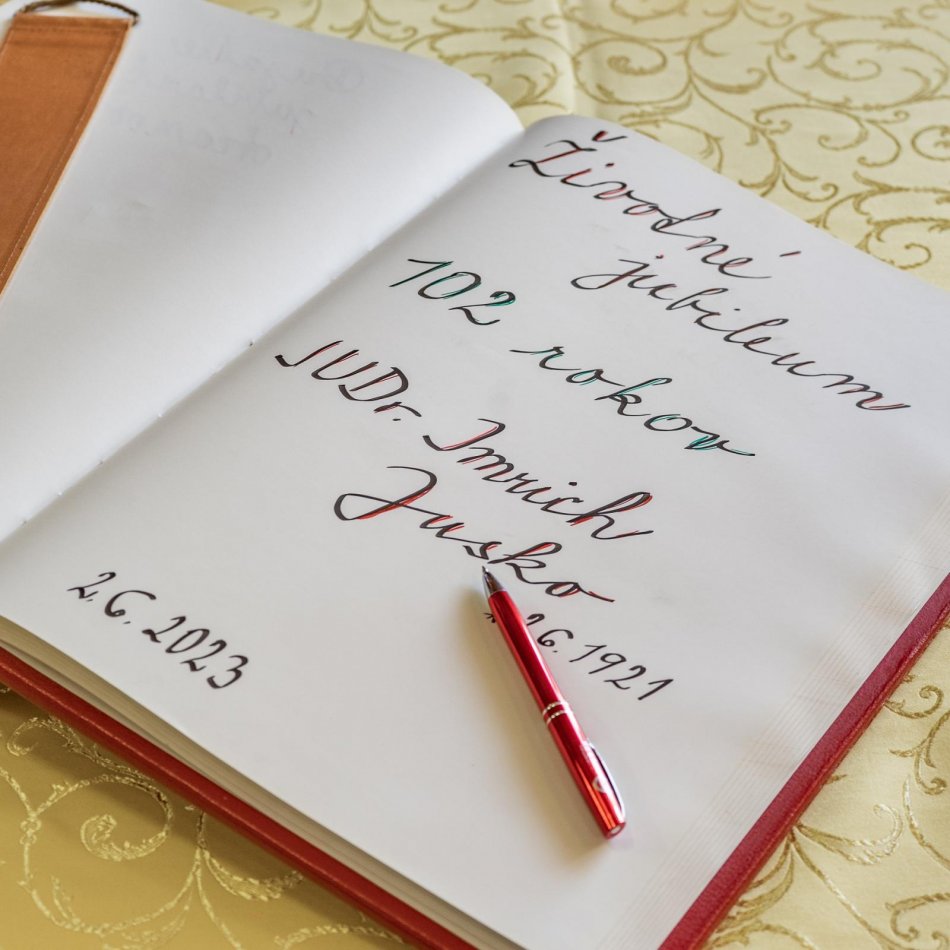 Životné
jubileum
102 rokov
JUDr. Imrich
Jusko
* 2.6.1921
2.6.2023